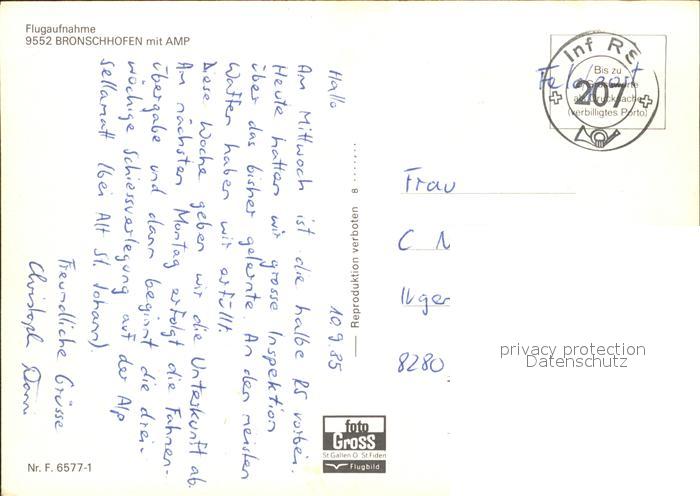 Flugaufnahme
9552 BRONSCHHOFEN mit AMP
Hallo 10.9.85
Am Mittwoch ist die halbe RS vorbei.
Heute hatten wir grosse Inspektion
über das bisher gelernte. An den meisten
Waffen haben wir erfüllt.
Diese Woche geben wir die Unterkunft ab.
Am nächsten Montag erfolgt die Fahnen-
übergabe und dann beginnt die drei-
wöchige Schiessverlegung auf der Alp
Sellamatt (bei Alt St. Johann).
Freundliche Grüsse
Christoph
Nr. F. 6577-1
Reproduktion verboten 8
foto
GROSS
St Gallen O. St Fiden
Flugbild
Inf RS
207
Feldpost
Bis zu
(verbilligtes Porto)
Frau
C N
8280
privacy protection
Datenschutz